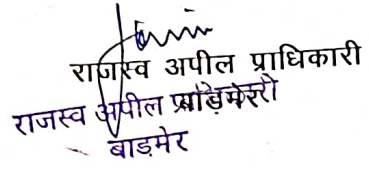 राजस्व अपील प्राधिकारी
राजस्व अपील
बाड़मेर